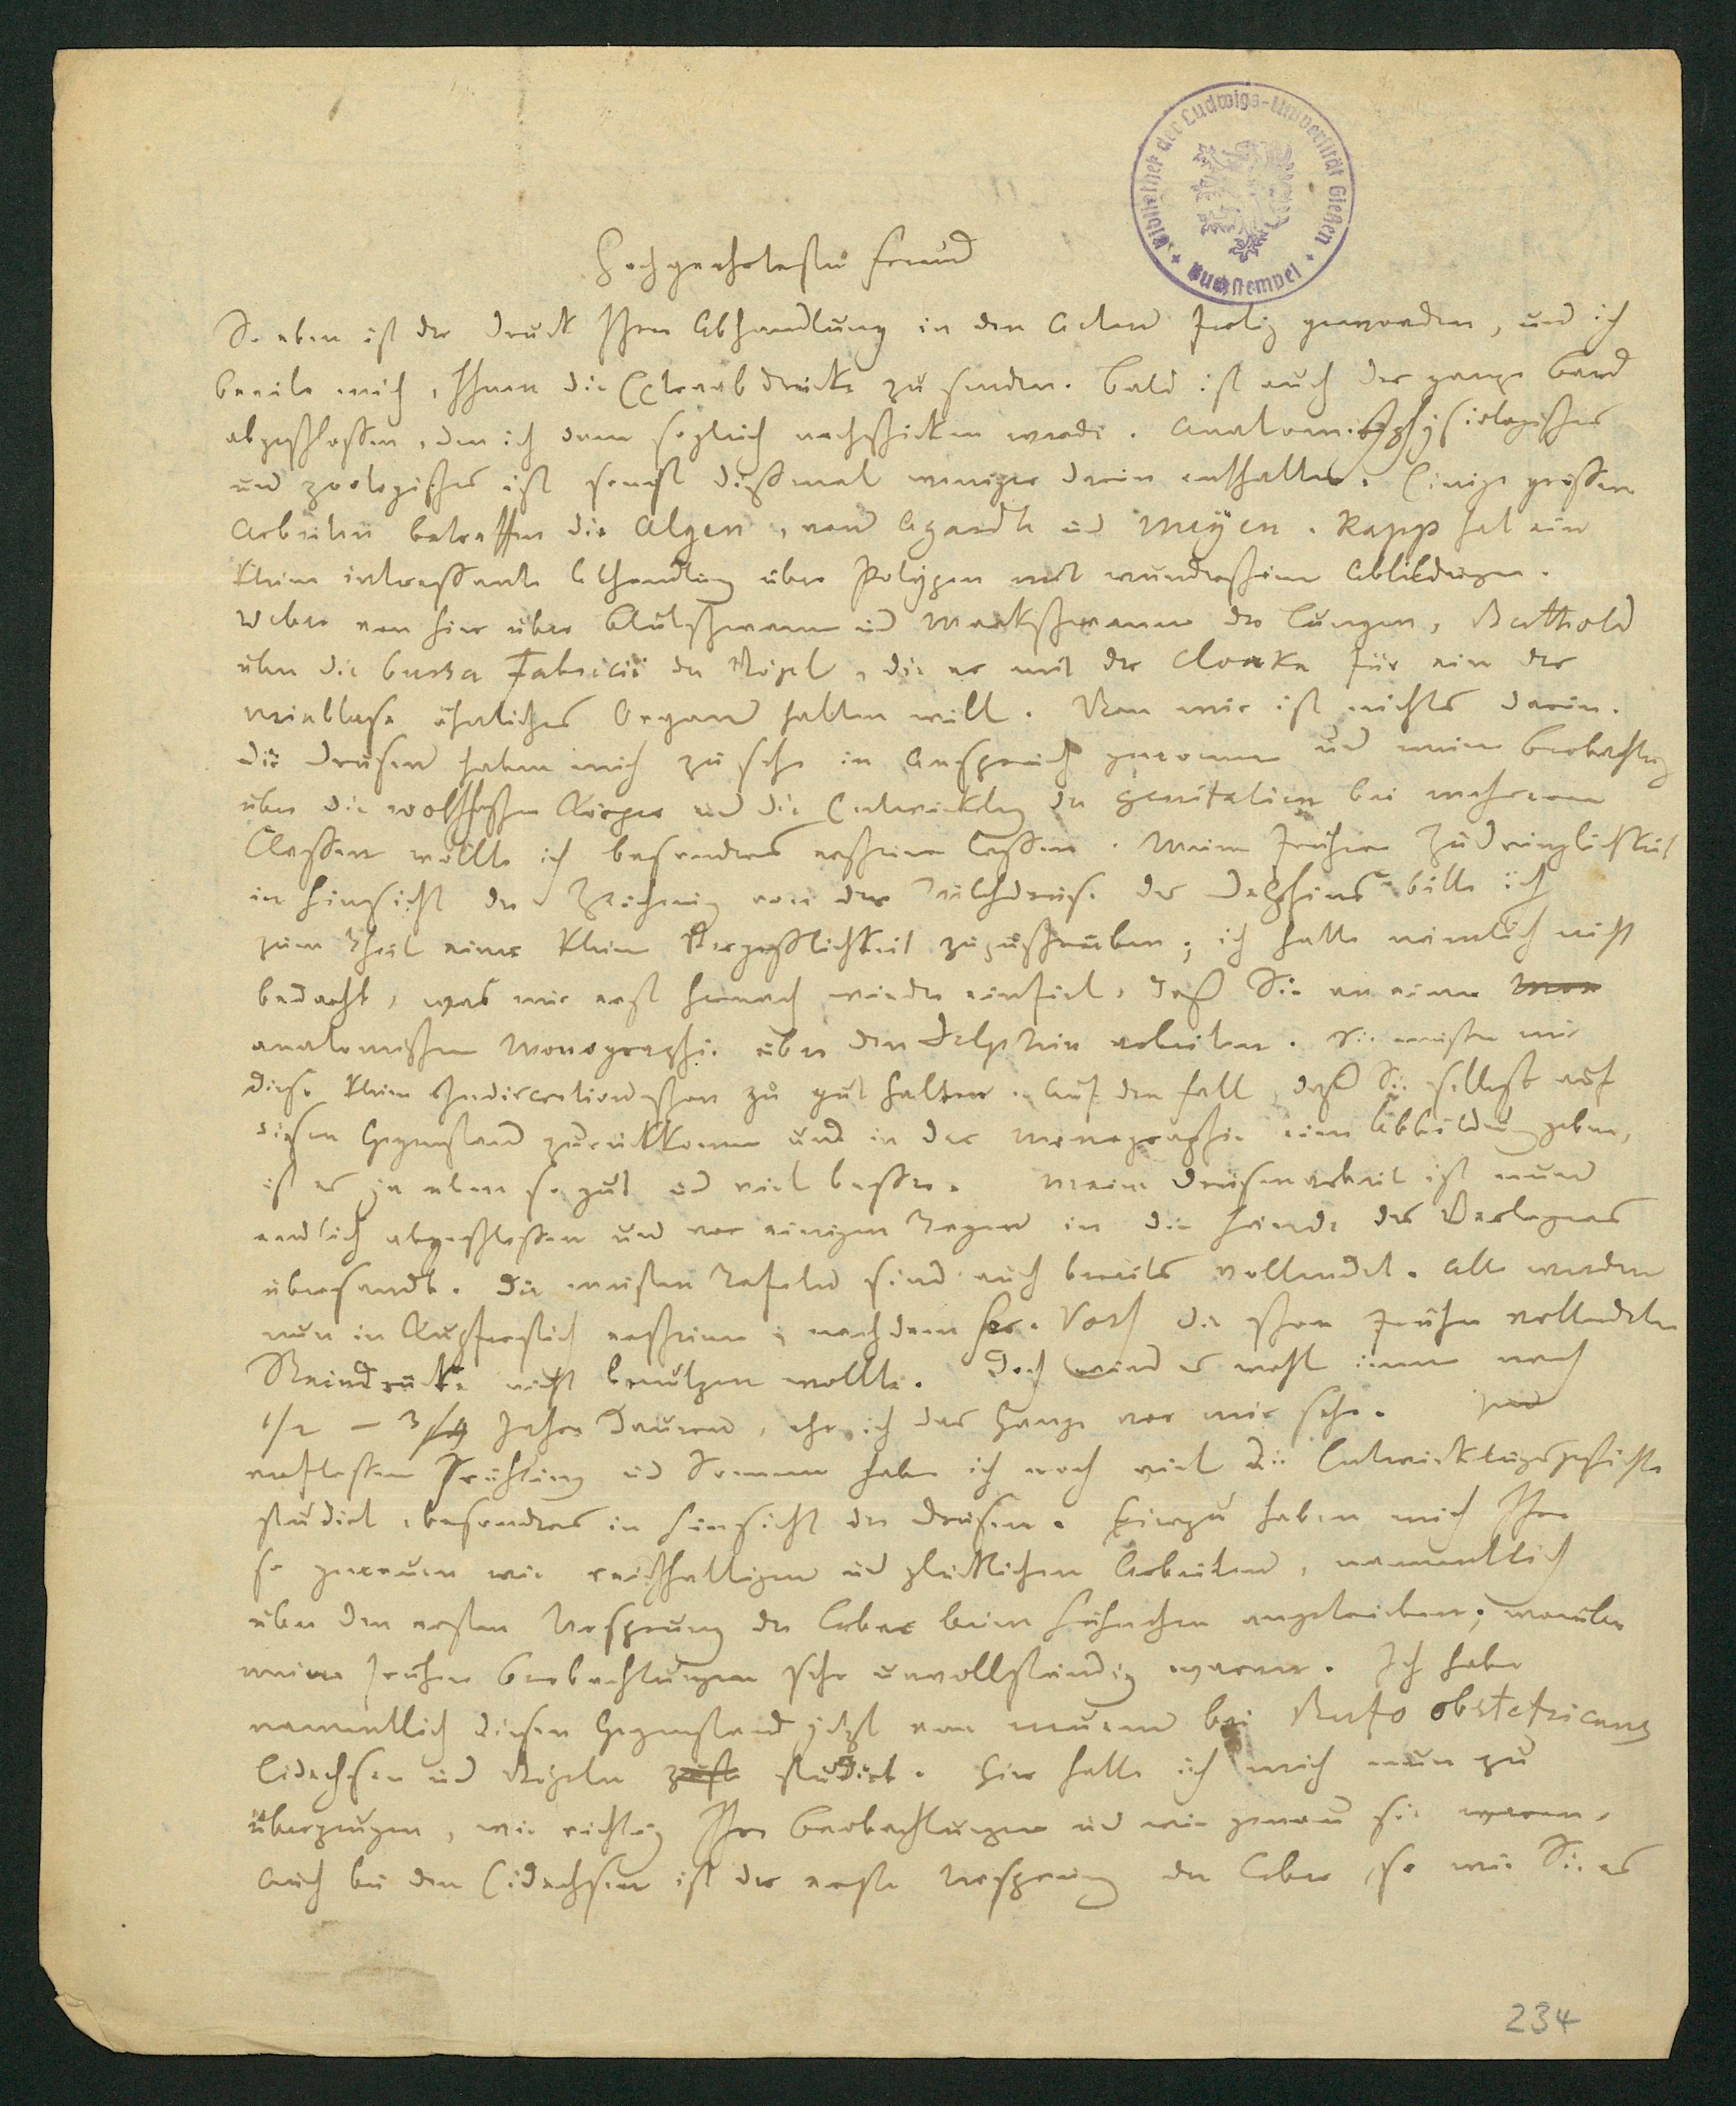 Bibliothek der Ludwigs-Universität Gießen
Buchstempel
Hochgeehrtester Freund
So eben ist der Druck Ihrer Abhandlung in den Acten fertig geworden, und ich
beeile mich, Ihnen die Extraabdrücke zu senden. Bald ist auch der ganze Band
abgeschlossen, den ich dann sogleich nachschicken werde. Anatomischphysiologisches
und zoologisches ist sonst dießmal weniger darin enthalten. Einige größere
Arbeiten betreffen die Algen, von Agardh und Meyen. Rapp hat eine
kleine interessante Abhandlung über Polypen mit wunderschönen Abbildungen.
Weber von hier über Blutschwamm und Markschwamm der Lungen, Berthold
über die bursa Fabricii der Vögel, die er mit der Cloake für ein der
Urinblase ähnliches Organ halten will. Von mir ist nichts darin.
Die Drüsen haben mich zu sehr in Anspruch genommen und meine Beobachtung
über die wolffschen Körper und die Entwicklung der Genitalien bei mehreren
Classen wollte ich besonders erscheinen lassen. Meine frühere Zudringlichkeit
in Hinsicht der Zeichnung von der Milchdrüse des Delphins bitte ich
zum Theil einer kleinen Vergeßlichkeit zuzuschreiben; ich hatte nämlich nicht
bedacht, was mir erst hernach wieder einfiel, daß Sie an einer Mon
anatomischen Monographie über den Delphin arbeiten. Sie müssen mir
diese kleine Indiscretion schon zu gut halten. Auf den Fall, daß Sie selbst auf
diesen Gegenstand zurückkommen und in der Monographie eine Abbildung geben,
ist es ja eben so gut und viel besser. Meine Drüsenarbeit ist nun
endlich abgeschlossen und vor einigen Tagen in die Hände des Verlegers
übersandt. Die meisten Tafeln sind auch bereits vollendet. Alle werden
nun in Kupferstich erscheinen; nachdem Hr. Voß die schon früher vollendeten
Steindrücke nicht benutzen wollte. Doch wird es wohl immer noch
1/2 – 3/4 Jahre dauern, ehe ich das Ganze vor mir sehe.
verflossenen Frühling und Sommer habe ich noch viel die Entwicklungsgeschichte
studirt, besonders in Hinsicht der Drüsen. Hierzu haben mich Ihre
so genauen wie reichhaltigen und glücklichen Arbeiten, namentlich
über den ersten Ursprung der Leber beim Hühnchen angetrieben; worüber
meine frühere Beobachtungen sehr unvollständig waren. Ich habe
namentlich diesen Gegenstand jetzt von neuem bei Bufo obstetricans
Eidechsen und Vögeln studirt. Hier hatte ich mich nun zu
überzeugen, wie richtig Ihre Beobachtungen und wie genau sie waren.
Auch bei den Eidechsen ist der erste Ursprung der Leber, so wie Sie es
234